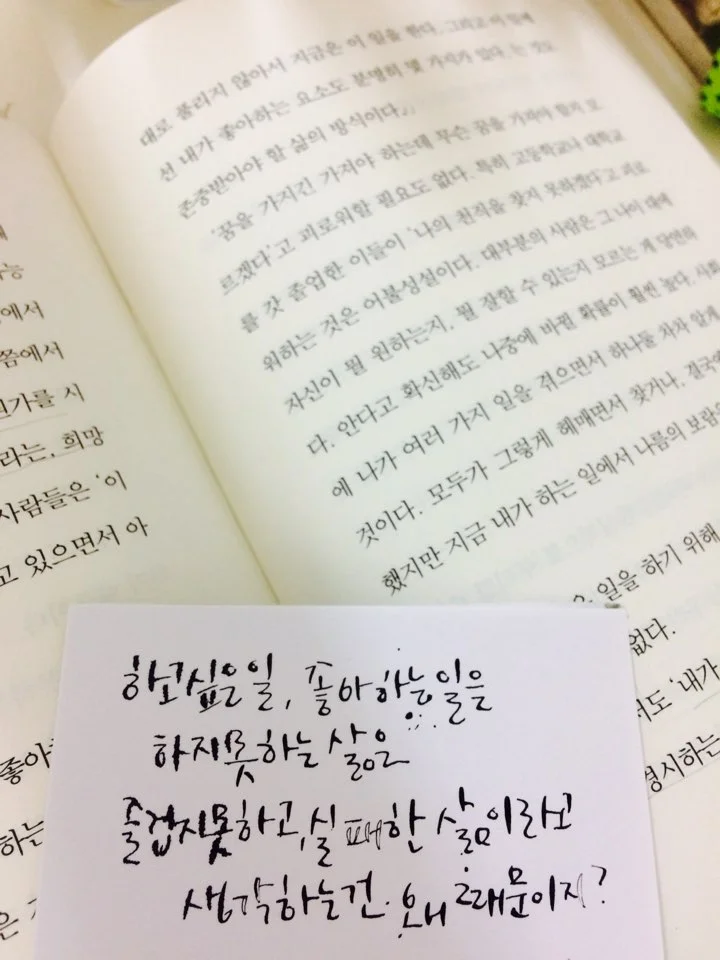 대로 풀리지 않아서 지금은 이 일을 한다. 그리고 이 일에
선 내가 좋아하는 요소도 분명히 몇 가지가 있다.'는 것도
존중받아야 할 삶의 방식이다.
'꿈을 가지긴 가져야 하는데 무슨 꿈을 가져야 할지 모
르겠다'고 괴로워할 필요도 없다. 특히 고등학교나 대학교
를 갓 졸업한 이들이 '나의 천직을 찾지 못하겠다'고 괴로
워하는 것은 어불성설이다. 대부분의 사람은 그 나이 대에
자신이 뭘 원하는지, 뭘 잘할 수 있는지 모르는 게 당연하
다. 안다고 확신해도 나중에 바뀔 확률이 훨씬 높다. 사회
에 나가 여러 가지 일을 겪으면서 하나둘 차차 알게
것이다. 모두가 그렇게 헤매면서 찾거나, 결국
했지만 지금 내가 하는 일에서 나름의 보람
일을 하기 위해
없다.
도 '내가
경시하는
능
에서
쯤에서
가를 시
라는, 희망
사람들은 '이
고 있으면서 아
좋아
하는
은
하고싶은일, 좋아하는일을
하지못하는 삶은
즐겁지못하고, 실패한 삶이라고
생각하는건. 왜 때문이지?